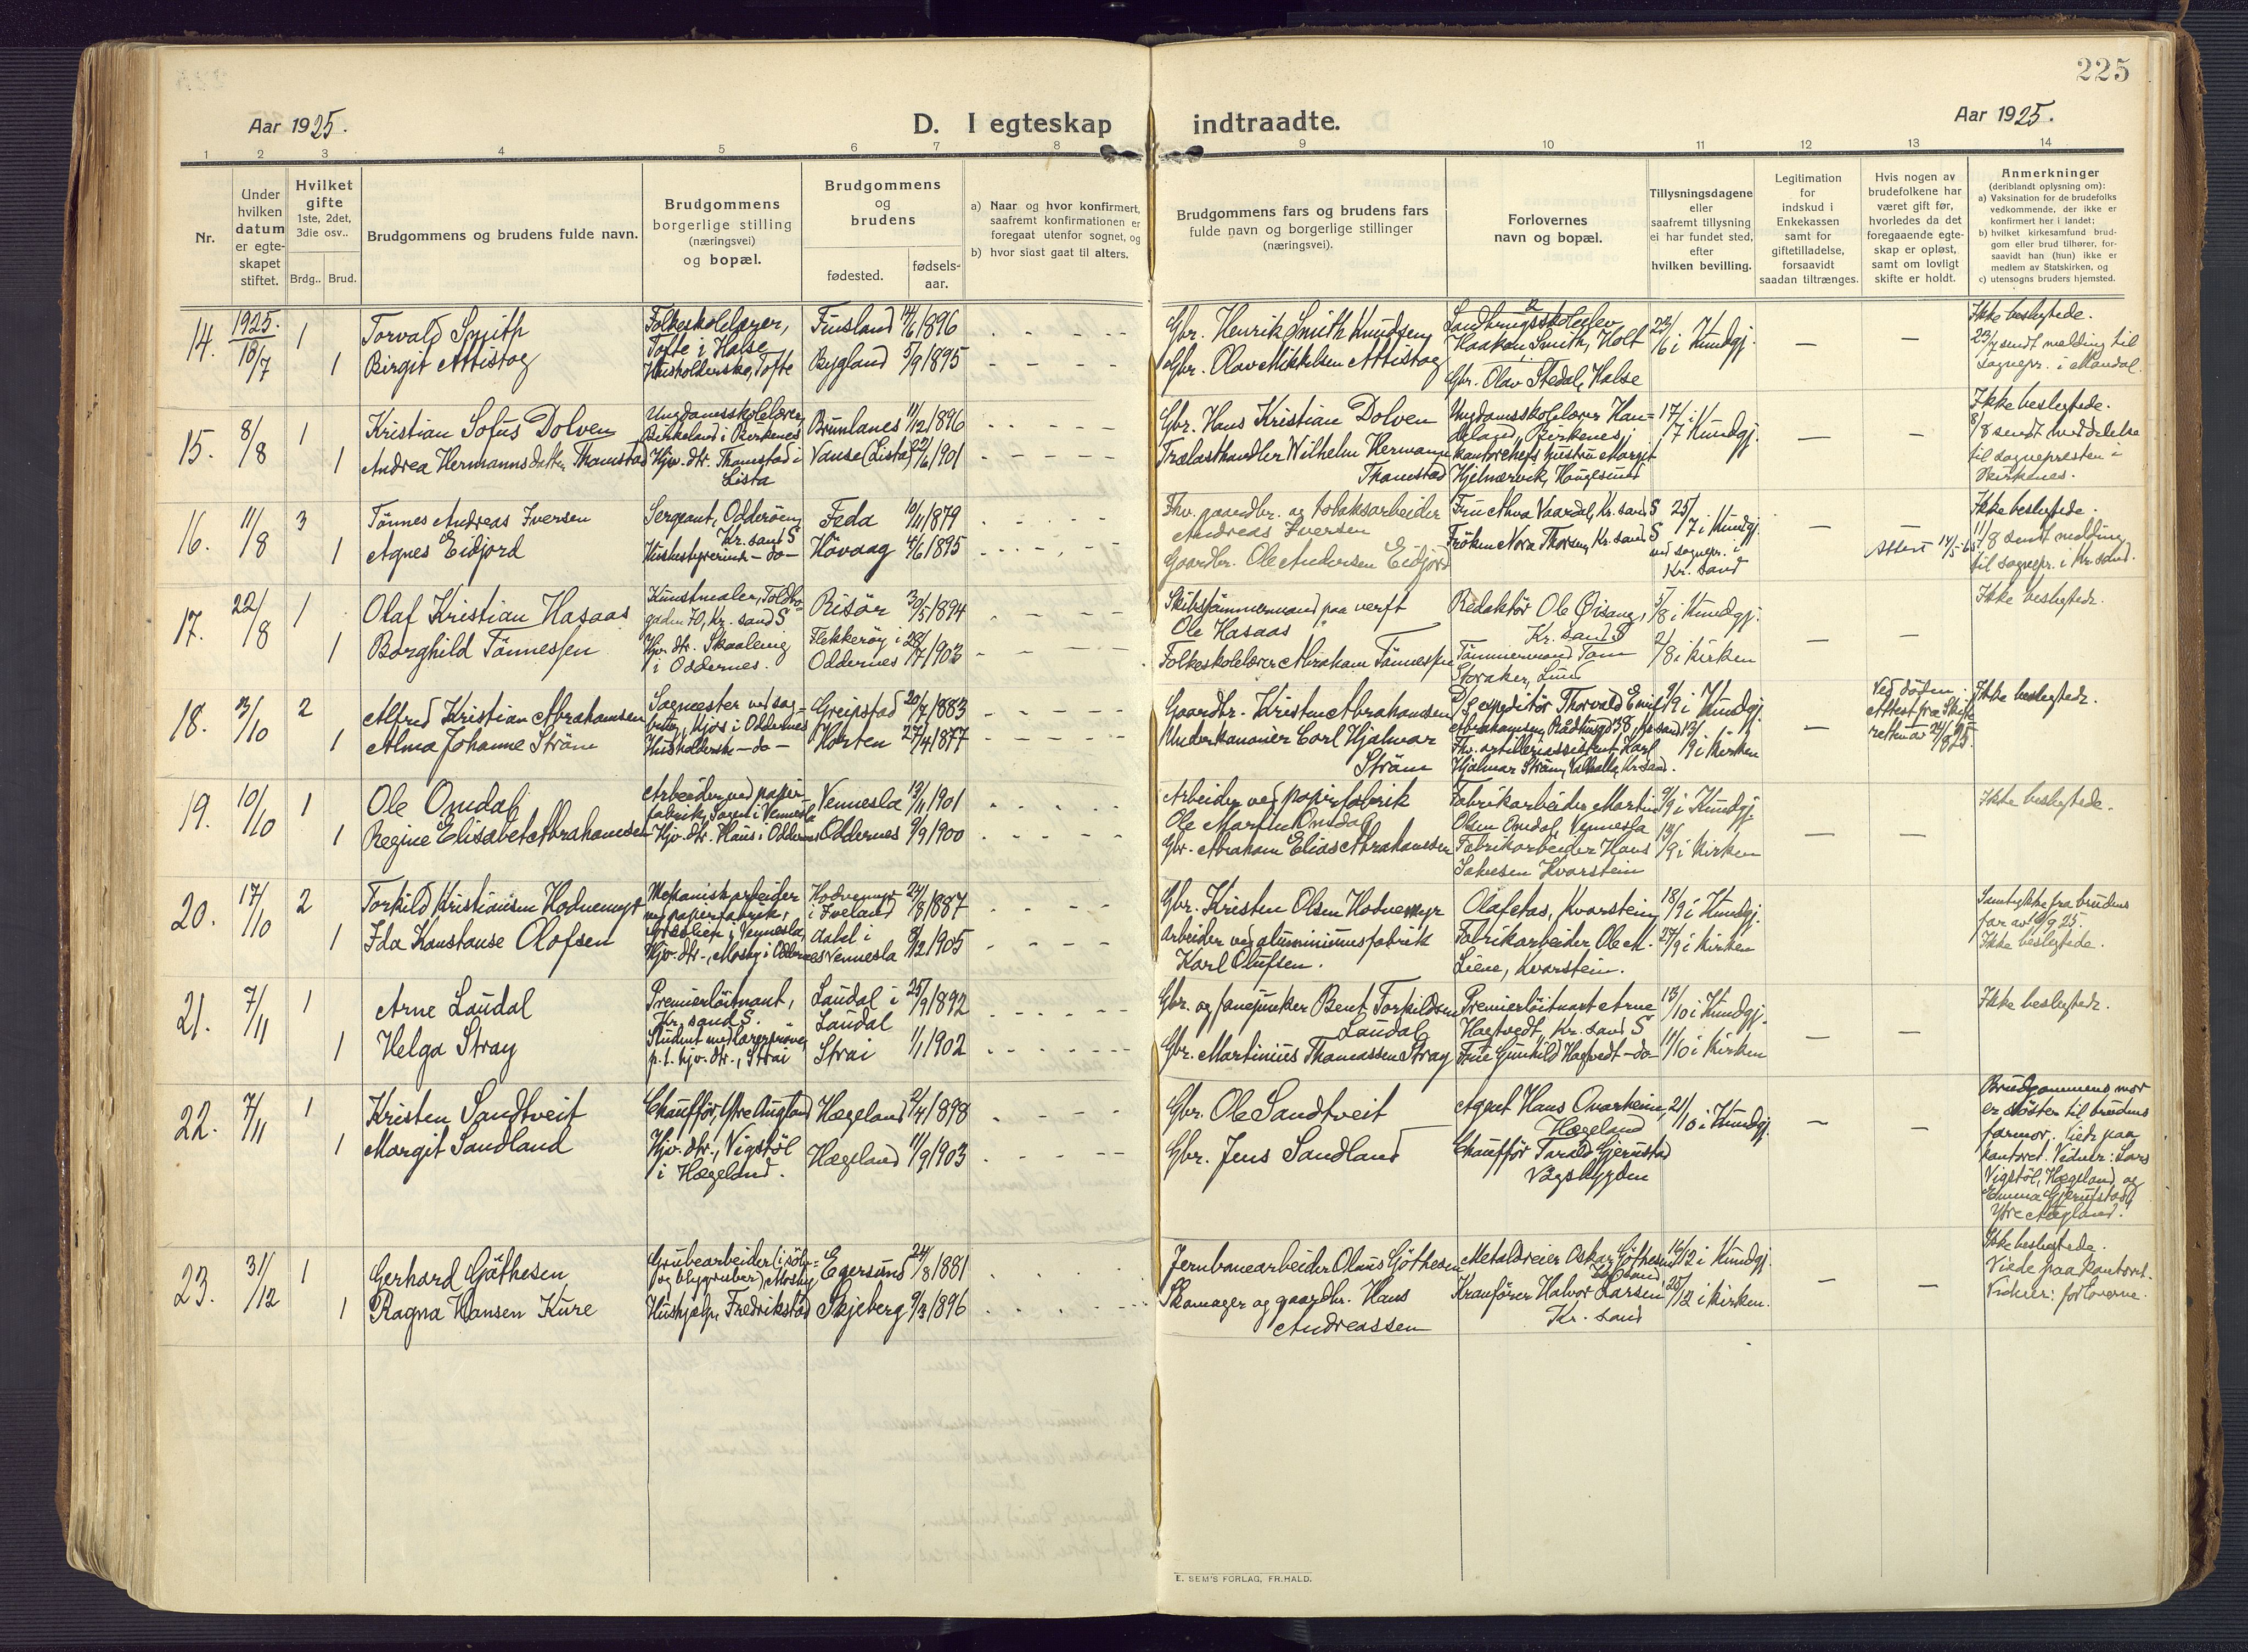 225
Aar 1925.
D. I egteskap indtraadte.
Aar 1925.
1 2 3 4 5 6 7 8 9 10 11 12 13 14
Nr.
Under
hvilken
datum
er egte-
skapet
stiftet.
Hvilket
gifte
1ste, 2det,
3die osv..
Brdg.. Brud.
Brudgommens og brudens fulde navn.
Brudgommens
borgerlige stilling
(næringsvei)
og bopæl.
Brudgommens
og
brudens
fødested.
fødsels-
aar.
a) Naar og hvor konfirmert,
saafremt konfirmationen er
foregaat utenfor sognet, og
b) hvor sidst gaat til alters.
Brudgommens fars og brudens fars
fulde navn og borgerlige stillinger
(næringsvei).
Forlovernes
navn og bopæl.
Tillysningsdagene
eller
saafremt tillysning
ei har fundet sted,
efter
hvilken bevilling.
Legitimation
for
indskud i
Enkekassen
samt for
giftetilladelse,
forsaavidt
saadan tiltrænges.
Hvis nogen av
brudefolkene har
været gift før,
hvorledes da det
foregaaende egte-
skap er opløst,
samt om lovligt
skifte er holdt.
Anmerkninger
(deriblandt oplysning om):
a) Vaksination for de brudefolks
vedkommende, der ikke er
konfirmert her i landet;
b) hvilket kirkesamfund brud-
gom eller brud tilhører, for-
saavidt han (hun) ikke er
medlem av Statskirken, og
c) utensogns bruders hjemsted.
14. 1925. 18/7 1 Torvald Smith
Folkeskolelærer,
Tofte i Halse
Finsland 14/6 1896
1 Birgit
Husholderske, Tofte
Bygland 5/9 1895
Gbr. Henrik Smith Knudsen
Gbr. Olav Mikkelsen
Landbruksskoleelev
Haakon Smith, Holt
Gbr. Olav Stedal, Halse
22/6 i Kundgj. — —
Ikke beslegtede.
23/7 sendt melding til
sognepr. i Mandal.
15. 8/8 1 Kristian Sofus Dolven
Ungdomsskolelærer,
Birkeland i Birkenes
Brunlanes 11/12 1896
1 Andrea Hermannsdatter Thamstad
Hjv. dtr. Thamstad i
Lista
Vanse (Lista) 22/6 1901
Gbr. Hans Kristian Dolven
Trælasthandler Wilhelm Hermann
Thamstad
Ungdomsskolelærer Han-
Birkenes,
kontorchefs hustru Margit
Hjelmervik, Haugesund
17/7 i Kundgj. — —
Ikke beslegtede.
8/8 sendt meddelelse
til sognepresten i
Birkenes.
16. 11/8 3 Tönnes Andreas Iversen
Sergeant, Odderöen,
Kr. sand S
Feda 10/11 1879
1 Agnes Eidjord
Husbestyrerinde -do-
Hövaag 4/6 1895
Fhv. gaardbr. og tobaksarbeider
Andreas Iversen
Gaardbr. Ole Andersen Eidjord
Fru Vaardal, Kr. sand S
Fröken Nora Thorsen, Kr. sand S
25/7 i Kundgj.
ved sognepr. i
Kr. sand
— —
Attest
Ikke beslegtede.
11/8 sendt melding
til sognepr. i Kr. sand.
17. 22/8 1 Olaf Kristian Hasaas
Kunstmaler, Toldbo-
gaden 70, Kr. sand S
Risör 30/5 1894
1 Borghild Tönnessen
Hjv. dtr. Skaalevig
i Oddernes.
Flekkeröy i
Oddernes
Skibstömmermand paa verft
Ole Hasaas
Folkeskolelærer Abraham Tönnessen
Redaktör Ole Öisang,
Kr. sand S
Tömmermand Tom
Storaker, Lund
5/8 i Kundgj.
2/8 i kirken
— —
Ikke beslegtede.
18. 3/10 2 Alfred Kristian Abrahamsen
Sagmester ved sag-
bruk, Mjös i Oddernes
Greipstad 20/7 1883
1 Alma Johanne Ström
Husholderske -do-
Horten 27/4 1877
Gaardbr. Kristen Abrahamsen
Underkanoner Carl Hjalmar
Ström
D/s expeditör Thorvald Emil
Abrahamsen, Rådhusgd 38, Kr. sand
Fhv. artilleriassistent Karl
Hjalmar Ström, Valhalla, Kr. sand.
9/9 i Kundgj.
13/9 i kirken
—
Ved döden.
Attest fra Skifte-
retten av 24/8 25.
Ikke beslegtede.
19. 10/10 1 Ole Omdal
Arbeider ved papir-
fabrik, i Vennesla
Vennesla 13/11 1901
1 Regine Elisabet Abrahamsen
Hjv. dtr. Haus i Oddernes
Oddernes 9/9 1900
Arbeider ved papirfabrik
Ole Martin Omdal
Gbr. Abraham Elias Abrahamsen
Fabrikarbeider Martin
Olsen Omdal, Vennesla
Fabrikarbeider Hans
Jakobsen Kvarstein
9/9 i Kundgj.
13/9 i kirken
— —
Ikke beslegtede.
20. 17/10 2 Torkild Kristiansen Hodnemyr
Mekanisk arbeider
ved papirfabrik,
i Vennesla,
Hodnemyr
i Iveland 24/8 1887
1 Ida Konstanse Olofsen
Hjv. dtr., Mosby i Oddernes
i
Vennesla 8/12 1905
Gbr. Kristen Olsen Hodnemyr
Arbeider ved aluminiumsfabrik
Karl Olufsen.
Olaf Aas, Kvarstein
Fabrikarbeider Ole M.
Liene, Kvarstein.
18/9 i Kundgj.
27/9 i kirken
— —
Samtykke fra brudens
far av 25.
Ikke beslegtede.
21. 7/11 1 Arne Laudal
Premierlöitnant,
Kr. sand S.
Laudal i
Laudal 25/9 1892
1 Helga Stray
Student med lærerpröve,
p. t. hjv. dtr., Strai
Strai 1/1 1902
Gbr. og fanejunker Bent Torkildsen
Laudal
Gbr. Martinius Thomassen Stray
Premierlöitnant Arne
Hagtvedt, Kr. sand S
Frue Gunhild Hagtvedt -do-
13/10 i Kundgj.
11/10 i kirken
— —
Ikke beslegtede.
22. 7/11 1 Kristen Sandtveit
Chauffför, Ytre Augland
Hægeland 2/4 1898
1 Margit Sandland
Hjv. dtr., Vigstöl
i Hægeland.
Hægeland 11/9 1903
Gbr. Ole Sandtveit
Gbr. Jens Sandland
Agent Hans Kvarstein,
Hægeland
Chauffför Tarald Gjerustad
Vågsbygden
21/10 i Kundgj.
— —
Brudgommens mor
er söster til brudens
farmor. Viede paa
kontoret. Vidner: Lars
Vigstöl, Hægeland, og
Emma Gjerustad,
Ytre Augland.
23. 31/12 1 Gerhard Göthesen
Grubearbeider (i sölv-
og blygruber), Mosby
Egersund 24/8 1881
1 Ragna Hansen Kure
Hushjelp, Fredrikstad
Skjeberg 9/3 1896
Jernbanearbeider Olaus Göthesen
Skomager og gaardbr. Hans
Andreassen
Metaldreier Oskar Göthesen
Kr. sand
Kranförer Halvor Larsen
Kr. sand
16/12 i Kundgj.
25/12 i kirken.
— —
Ikke beslegtede.
Viede paa kontoret.
Vidner: forloverne.
E. SEM'S FORLAG, FR.HALD.